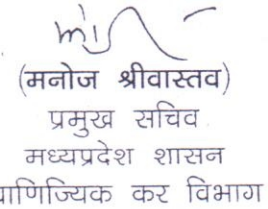 (मनोज श्रीवास्तव)
प्रमुख सचिव
मध्यप्रदेश शासन
कर विभाग